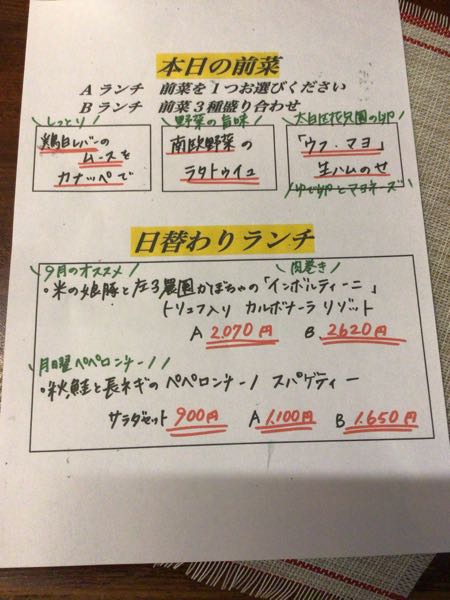 本日の前菜
Aランチ 前菜を1つお選びください
Bランチ 前菜3種盛り合わせ
\しっとり/
\野菜の旨味/
鶏白レバーの
ムースを
カナッペで
南欧野菜の
ラタトゥイユ
「ウフ・マヨ」
生ハムのせ
\ゆで卵とマヨネーズ/
日替わりランチ
\9月のオススメ/
\肉巻き/
・米の娘豚と庄司農園かぼちゃの「インボルティーニ」
トリュフ入り カルボナーラ リゾット
A 2,070円 B 2620円
月曜ペペロンチーノ/
・秋鮭と長ネギの ペペロンチーノ スパゲティー
サラダセット 900円 A 1,100円 B 1,650円